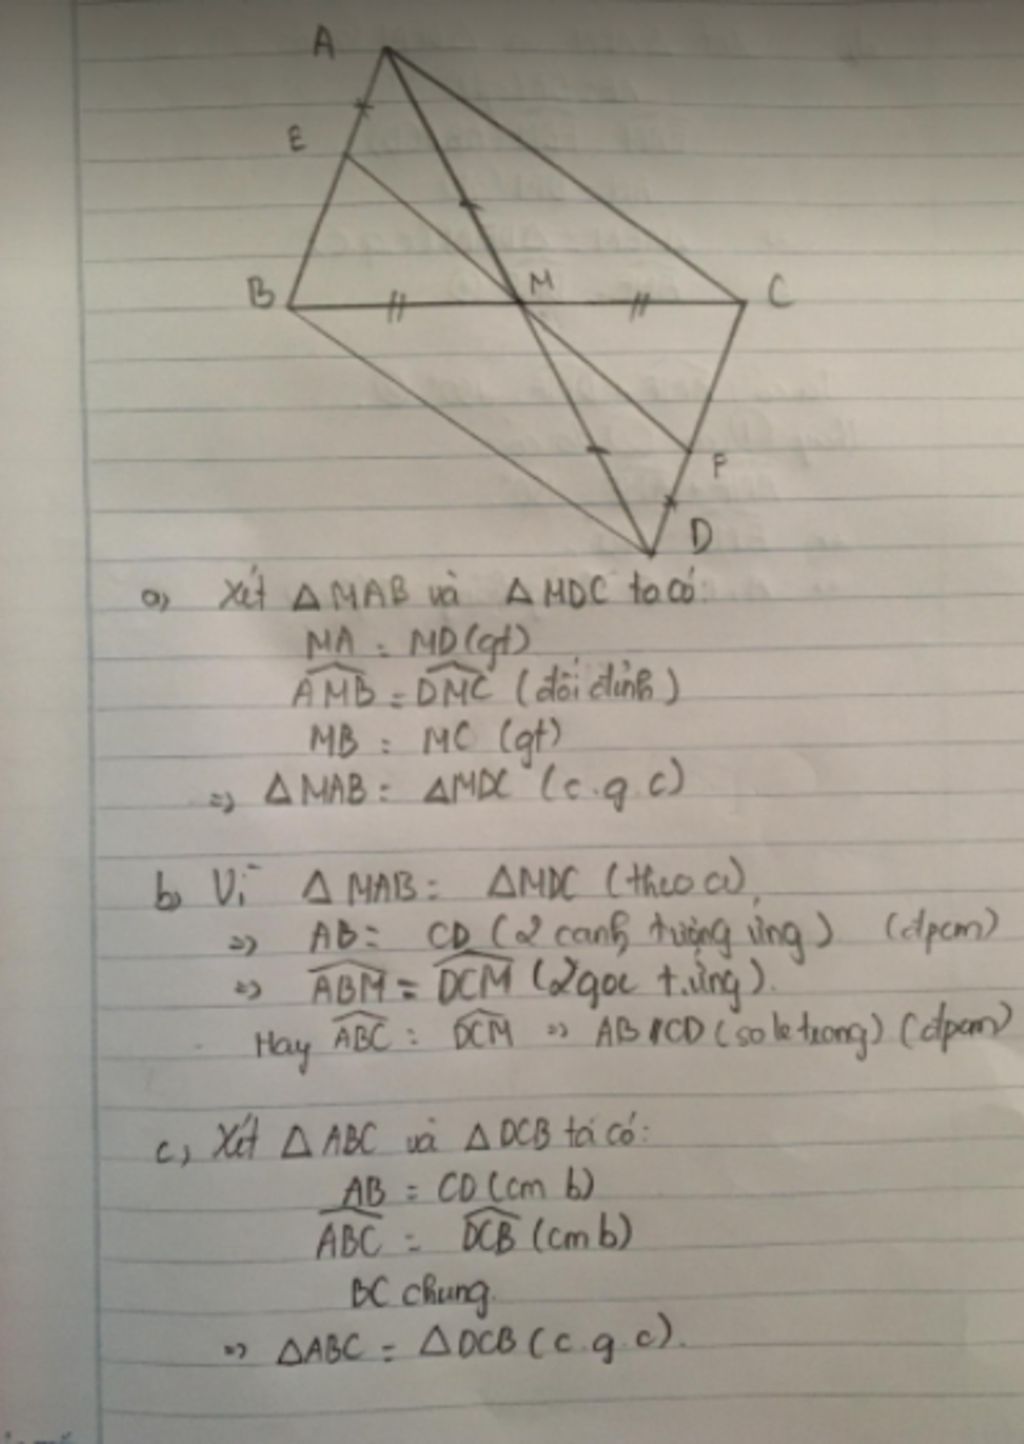 A
E
B
M
C
F
D
a) Xét Δ MAB và Δ MDC ta có:
MA = MD (gt)
\widehat{AMB} = \widehat{DMC} (đối đỉnh)
MB = MC (gt)
=> Δ MAB = ΔMDC (c.g.c)
b) Vì Δ MAB = ΔMDC (theo a)
=> AB = CD (2 cạnh tương ứng) (đpcm)
=> \widehat{ABM} = \widehat{DCM} (2 góc t.ứng).
Hay \widehat{ABC} = \widehat{DCM} => AB // CD (so le trong) (đpcm)
c, Xét Δ ABC và Δ DCB ta có:
AB = CD (cm b)
\widehat{ABC} = \widehat{DCB} (cm b)
BC chung.
=> ΔABC = ΔDCB (c.g.c).